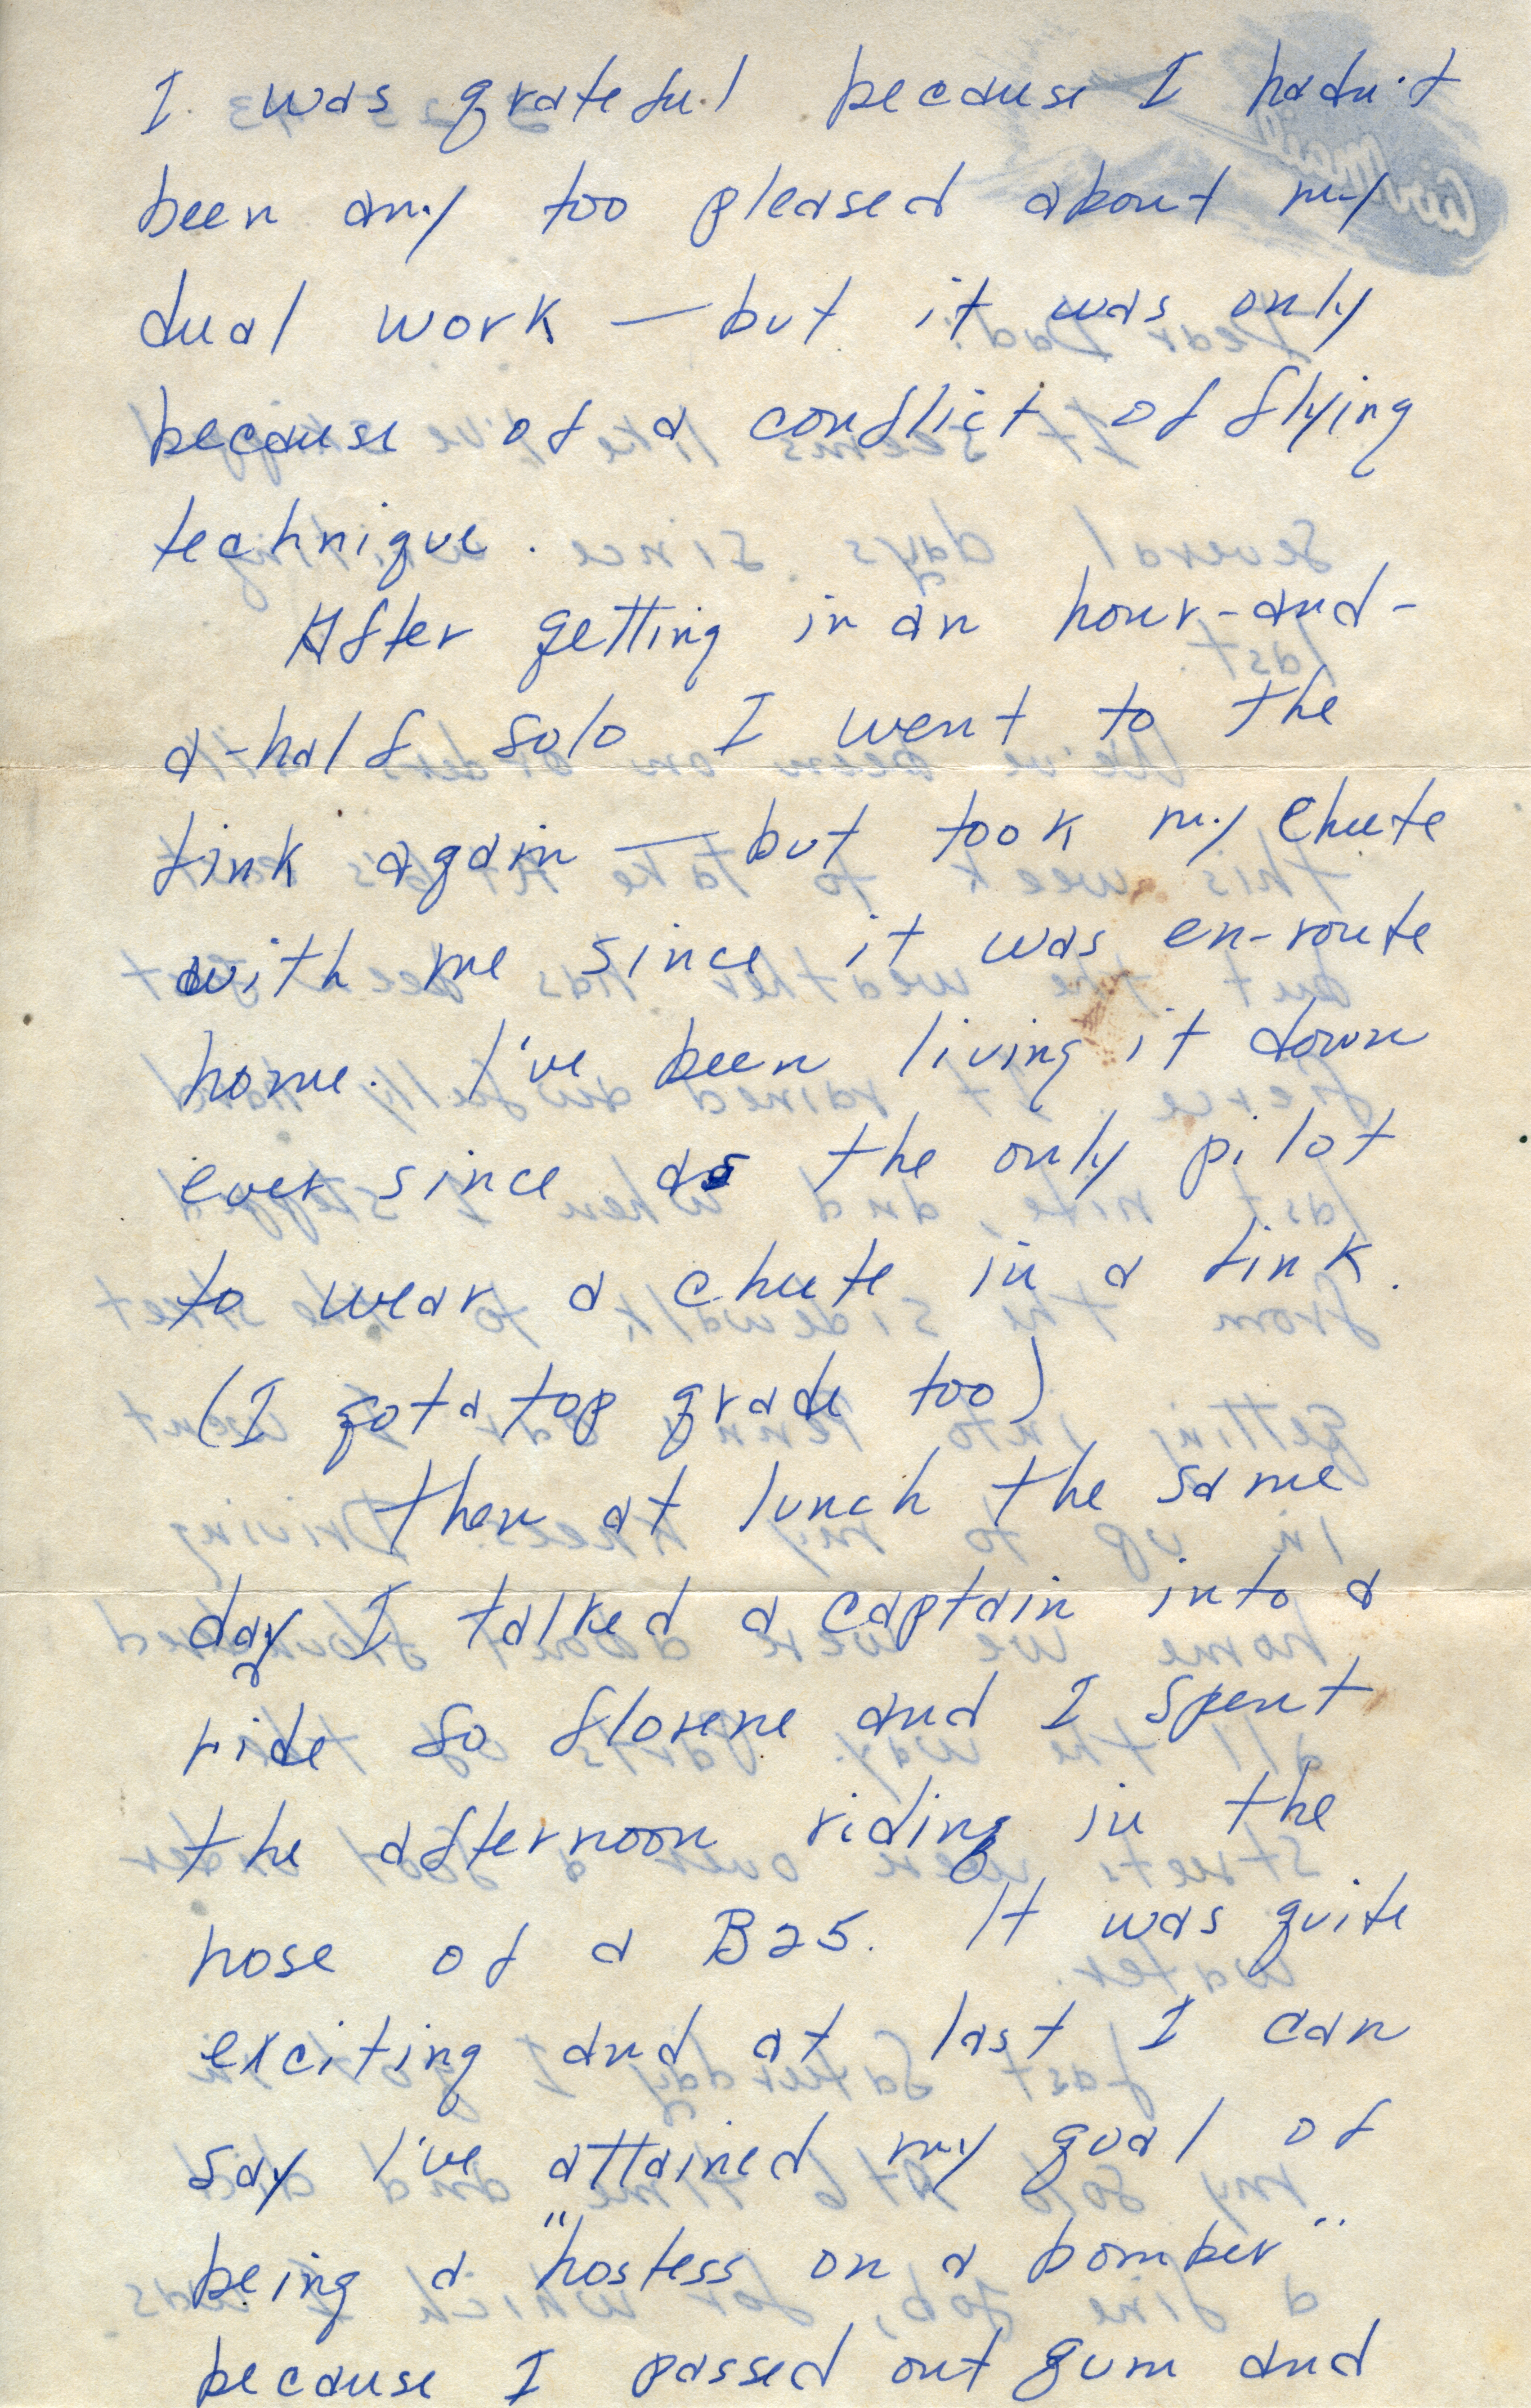 I was grateful because I hadn't
been any too pleased about my
dual work — but it was only
because of a conflict of flying
technique.
After getting in an hour-and-
a-half solo I went to the
Link again — but took my chute
with me since it was en-route
home. I've been living it down
ever since as the only pilot
to wear a chute in a Link.
(I got a top grade too)
Then at lunch the same
day I talked a captain into a
ride so Florene and I spent
the afternoon riding in the
nose of a B25. It was quite
exciting and at last I can
say I've attained my goal of
being a "hostess on a bomber"
because I passed out gum and